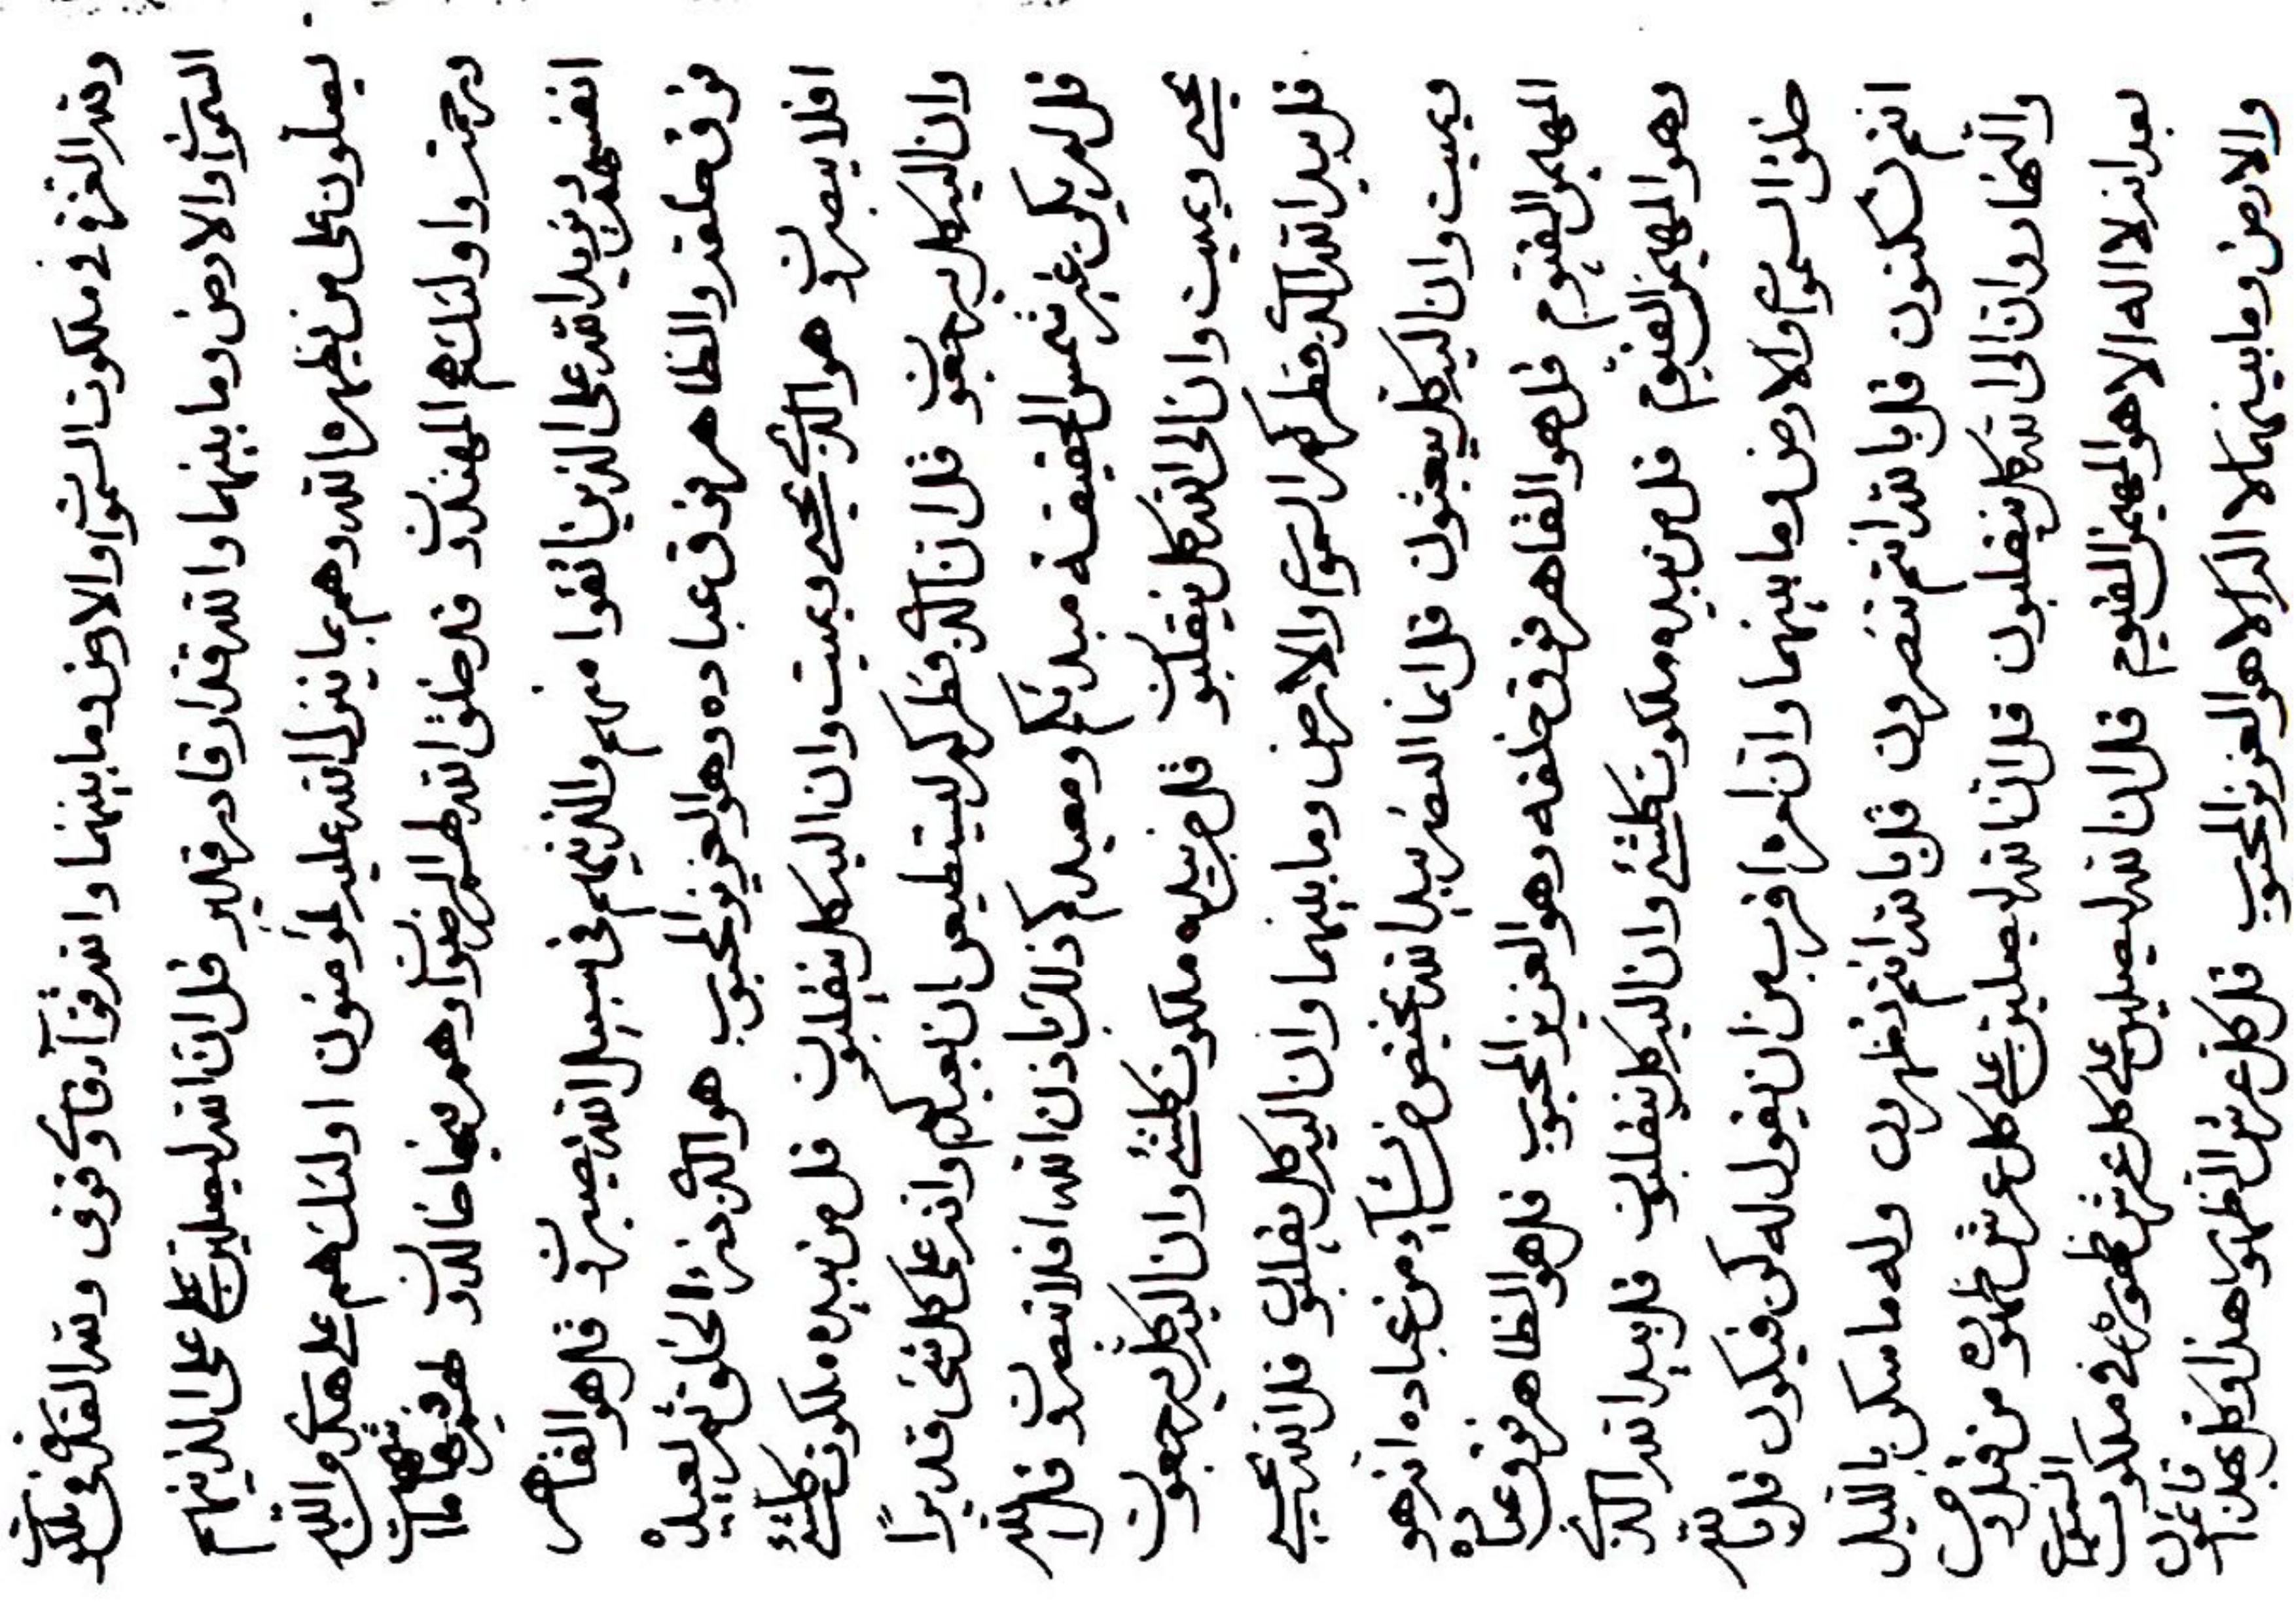 ولله العز في ملكوت السموات والارض وما بينهما والله ولله القدر في ملكوت
السموات والارض وما بينهما والله قدار قادر قدير قل ان الله ليصلين على الذينهم
يصلون على من يظهره الله وهم بما ينزل الله عليه لمؤمنون اولئك هم على هدى والله
ورحمته واولئك هم المهتدون قل خلق الله لهم الرضوان وهم فيها خالدون لهم فيها ما
انفسهم ويزيد الله على الذين اتقوا منهم والذينهم في سبيل الله يصبرون قل هو القاهر
فوق خلقه والظاهر فوق عباده وهو العزيز المحبوب هو الذي بدء الخلق ثم يعيده
افلا يبصرون هو الذي يحيي ويميت وان اليه كل ينقلبون قل من بيده ملكوت كلشئ
وان اليه كل يرجعون قل ان الذي فطركم ليستطيعن ان يعيدكم وانه على كل شئ قديرا
قل لم يكن غير شمس الحقيقة مبدئكم ومعيدكم ذلك باذن الله افلا تبصرون قل الله
يحيي ويميت وان الى الله كل ينقلبون قل من بيده ملكوت كلشئ وان اليه كل يرجعون
قل بيد الله الذي فطر السموات والارض وما بينهما وان اليه كل يقلبون قل الله يحيي
ويميت وان اليه كل يبعثون قل انما النصر بيد الله يختص من يشآء من عباده انه هو
المهيمن القيوم قل هو القاهر فوق خلقه وهو العزيز المحبوب قل هو الظاهر فوق عباده
وهو المهيمن القيوم قل من بيده ملكوت كلشئ وان اليه كل ينقلبون قل بيد الله الذي
خلق السموات والارض وما بينهما وان امره اقرب من ان يقول له كن فيكون قل بالله
انتم تسكنون قل بالله انتم تنصرون قل بالله انتم تظهرون وله ما سكن بالليل
والنهار وان الى الله كل ينقلبون قل ان الله ليصلين على كل عرش ظهوره من قبل ومن
بعد انه لا اله الا هو المهيمن القيوم قل ان الله ليصلين على كل عرش ظهوره في ملكوت السموات
والارض وما بينهما لا اله الا هو العزيز المحبوب قل كل عرش الظهور هذا وكل بهذا قائمون